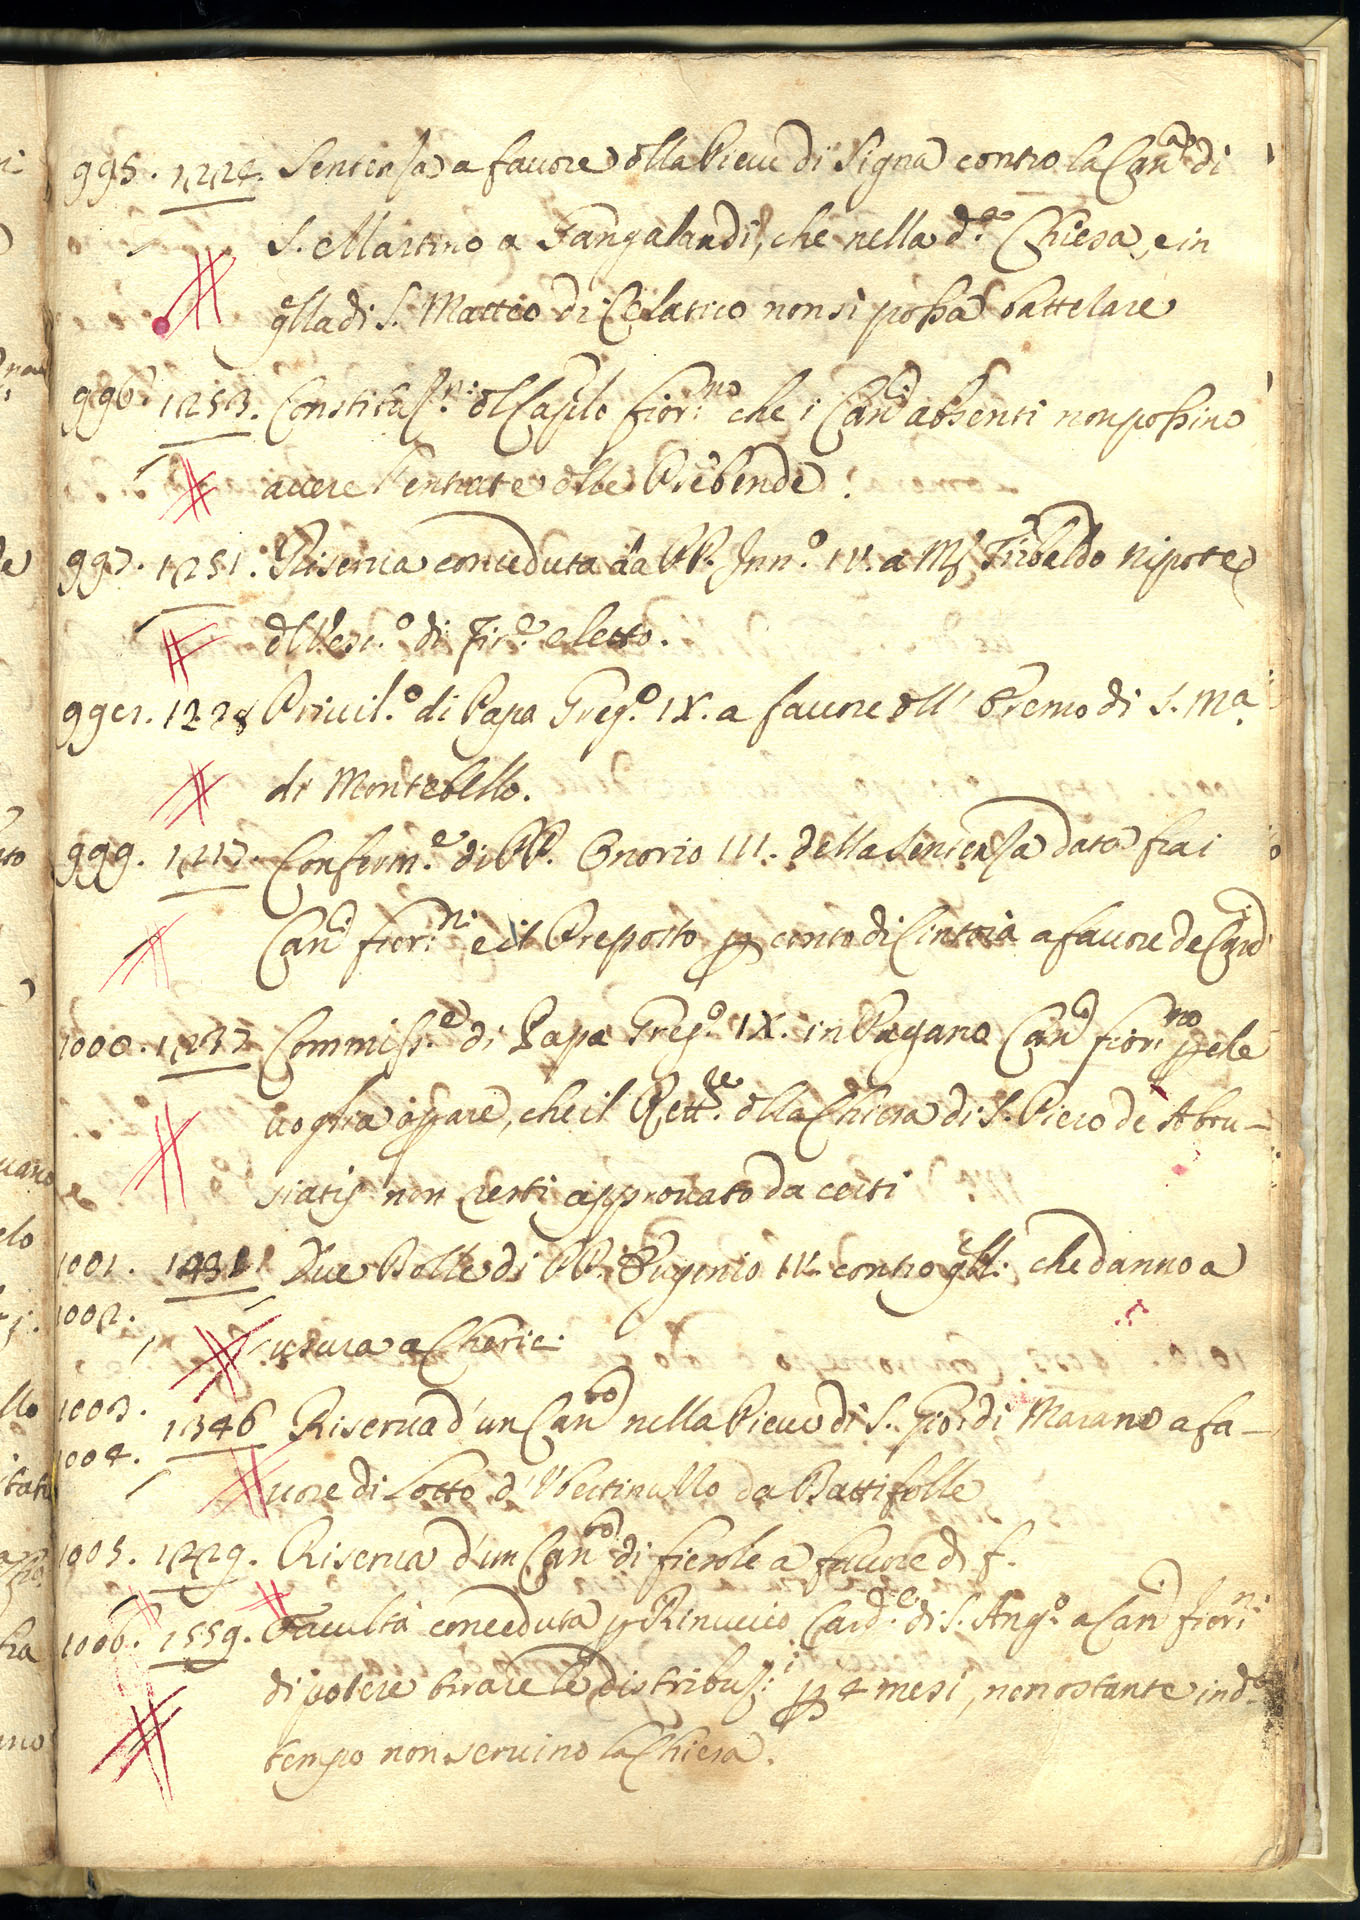 995. 1224. Sentenza a favore dlla Pieve di Signa contro la Can.ca di
S. Martino a Gangalandi, che nella d.a Chiesa, e in
qlla di S. Matteo di Celatico non si possa battezare
996. 1253. Constituz.ne dl Caplo fior.no che i Can.ci absenti non possino
avere l'entrate dlle Prebende.
997. 1251. Riserva conceduta da PP. Inn.o IV. a Ms Tribaldo Nipote
dl Vesc.o di Fir.e eletto.
998. 1228 Privil.o di Papa Greg.o IX. a favore dll' Eremo di S. Ma
di Montebello.
999. 1217. Conferm.e di PP. Onorio III. della sentenza data frai
Can.ci fior.ni e il Preposto p conto di Cintoia a favore de Can.ci
1000. 1237 Commiss.e di Papa Greg.o IX. in Pagano Can.co fior.no p ele
voglia oppare, che il Rett.re dlla Chiesa di S. Piero de Abru-
siatis non resti approvato da certi
1001. 1431 Due Bolle di PP. Eugenio IV. contro qlli che danno a
1002.
usura a Cheric.
1003. 1346 Riserva d'un Can.to nella Pieve di S. Gio: di Marano a fa-
1004.
vore di Lotto d'Ubertinullo da Battifolle
1005. 1229. Riserva d'un Can.to di fiesole a favore di f.
1006. 1559. Facultà conceduta p Rinuccio Card.e di S. Ang.o a Can.ci fior.ni
di potere tirare le distribuz.i p 4 mesi, nonostante in d.o
tempo non servino la Chiesa.